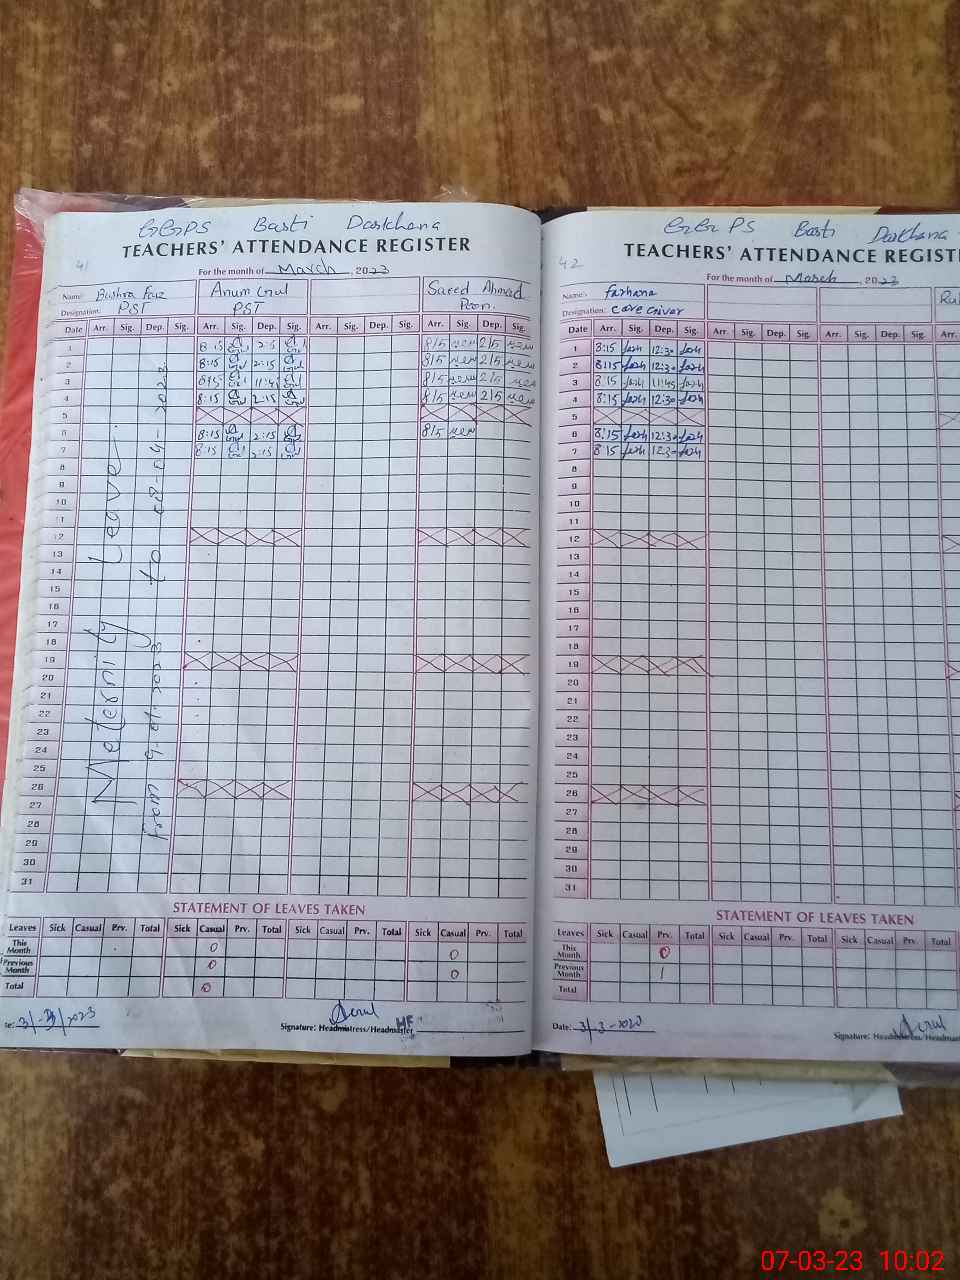 GGPS Basti Darkhana
TEACHERS' ATTENDANCE REGISTER
41
For the month of March, 2023
Name: Bushra Faiz Anum Gul Saeed Ahmed
Designation: PST PST Peon.
Date Arr. Sig. Dep. Sig. Arr. Sig. Dep. Sig. Arr. Sig. Dep. Sig. Arr. Sig. Dep. Sig.
1 8:15 2:15 8/5 2/5
2 8:15 2:15 8/5 2/5
3 8:15 11:45 8/5 2/5
4 8:15 2:15 8/5 2/5
5
6 8:15 2:15 8/5
7 8:15 2:15
8
9
10
11
12
13
14
15
16
17
18
19
20
21
22
23
24
25
26
27
28
29
30
31
Maternity Leave.
from 9-01-2023 to 08-04-2023
STATEMENT OF LEAVES TAKEN
Leaves Sick Casual Prv. Total Sick Casual Prv. Total Sick Casual Prv. Total Sick Casual Prv. Total
This Month 0 0
Previous Month 0 0
Total 0
te: 3/-3/2023
Signature: Headmistress/Headmaster
GGPS Basti Darkhana
TEACHERS' ATTENDANCE REGI
42
For the month of March, 2023
Name: Farhana
Designation: Care Giver
Date Arr. Sig. Dep. Sig. Arr. Sig. Dep. Sig. Arr. Sig. Dep. Sig. Arr.
1 8:15 farh 12:30 farh
2 8:15 farh 12:30 farh
3 8:15 farh 11:45 farh
4 8:15 farh 12:30 farh
5
6 8:15 farh 12:30 farh
7 8:15 farh 12:30 farh
8
9
10
11
12
13
14
15
16
17
18
19
20
21
22
23
24
25
26
27
28
29
30
31
STATEMENT OF LEAVES TAKEN
Leaves Sick Casual Prv. Total Sick Casual Prv. Total Sick Casual Prv. Total
This Month 0
Previous Month 1
Total
Date: 3/-3-2023
Signature: Headmistress/Headma
07-03-23 10:02